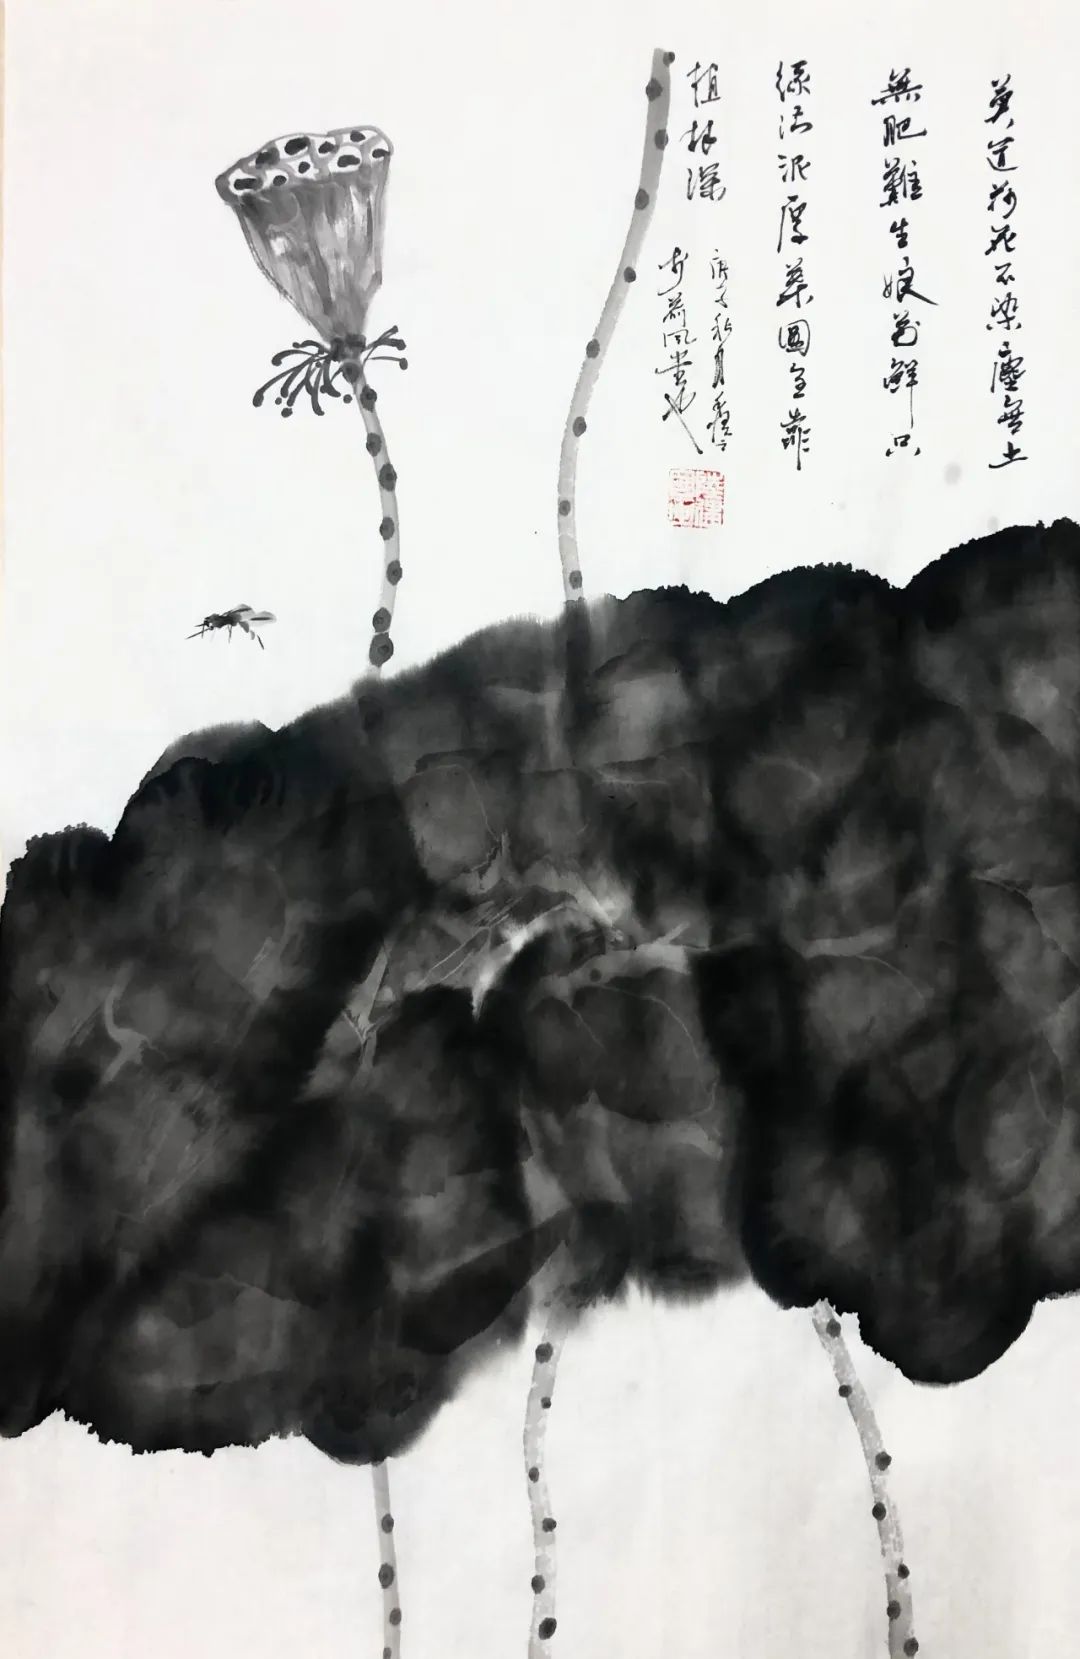 莫道荷花不染塵無土
無肥難生娘花鮮只
緣沃泥厚葉圓全靠
植根深
庚子秋月
於荷風堂也